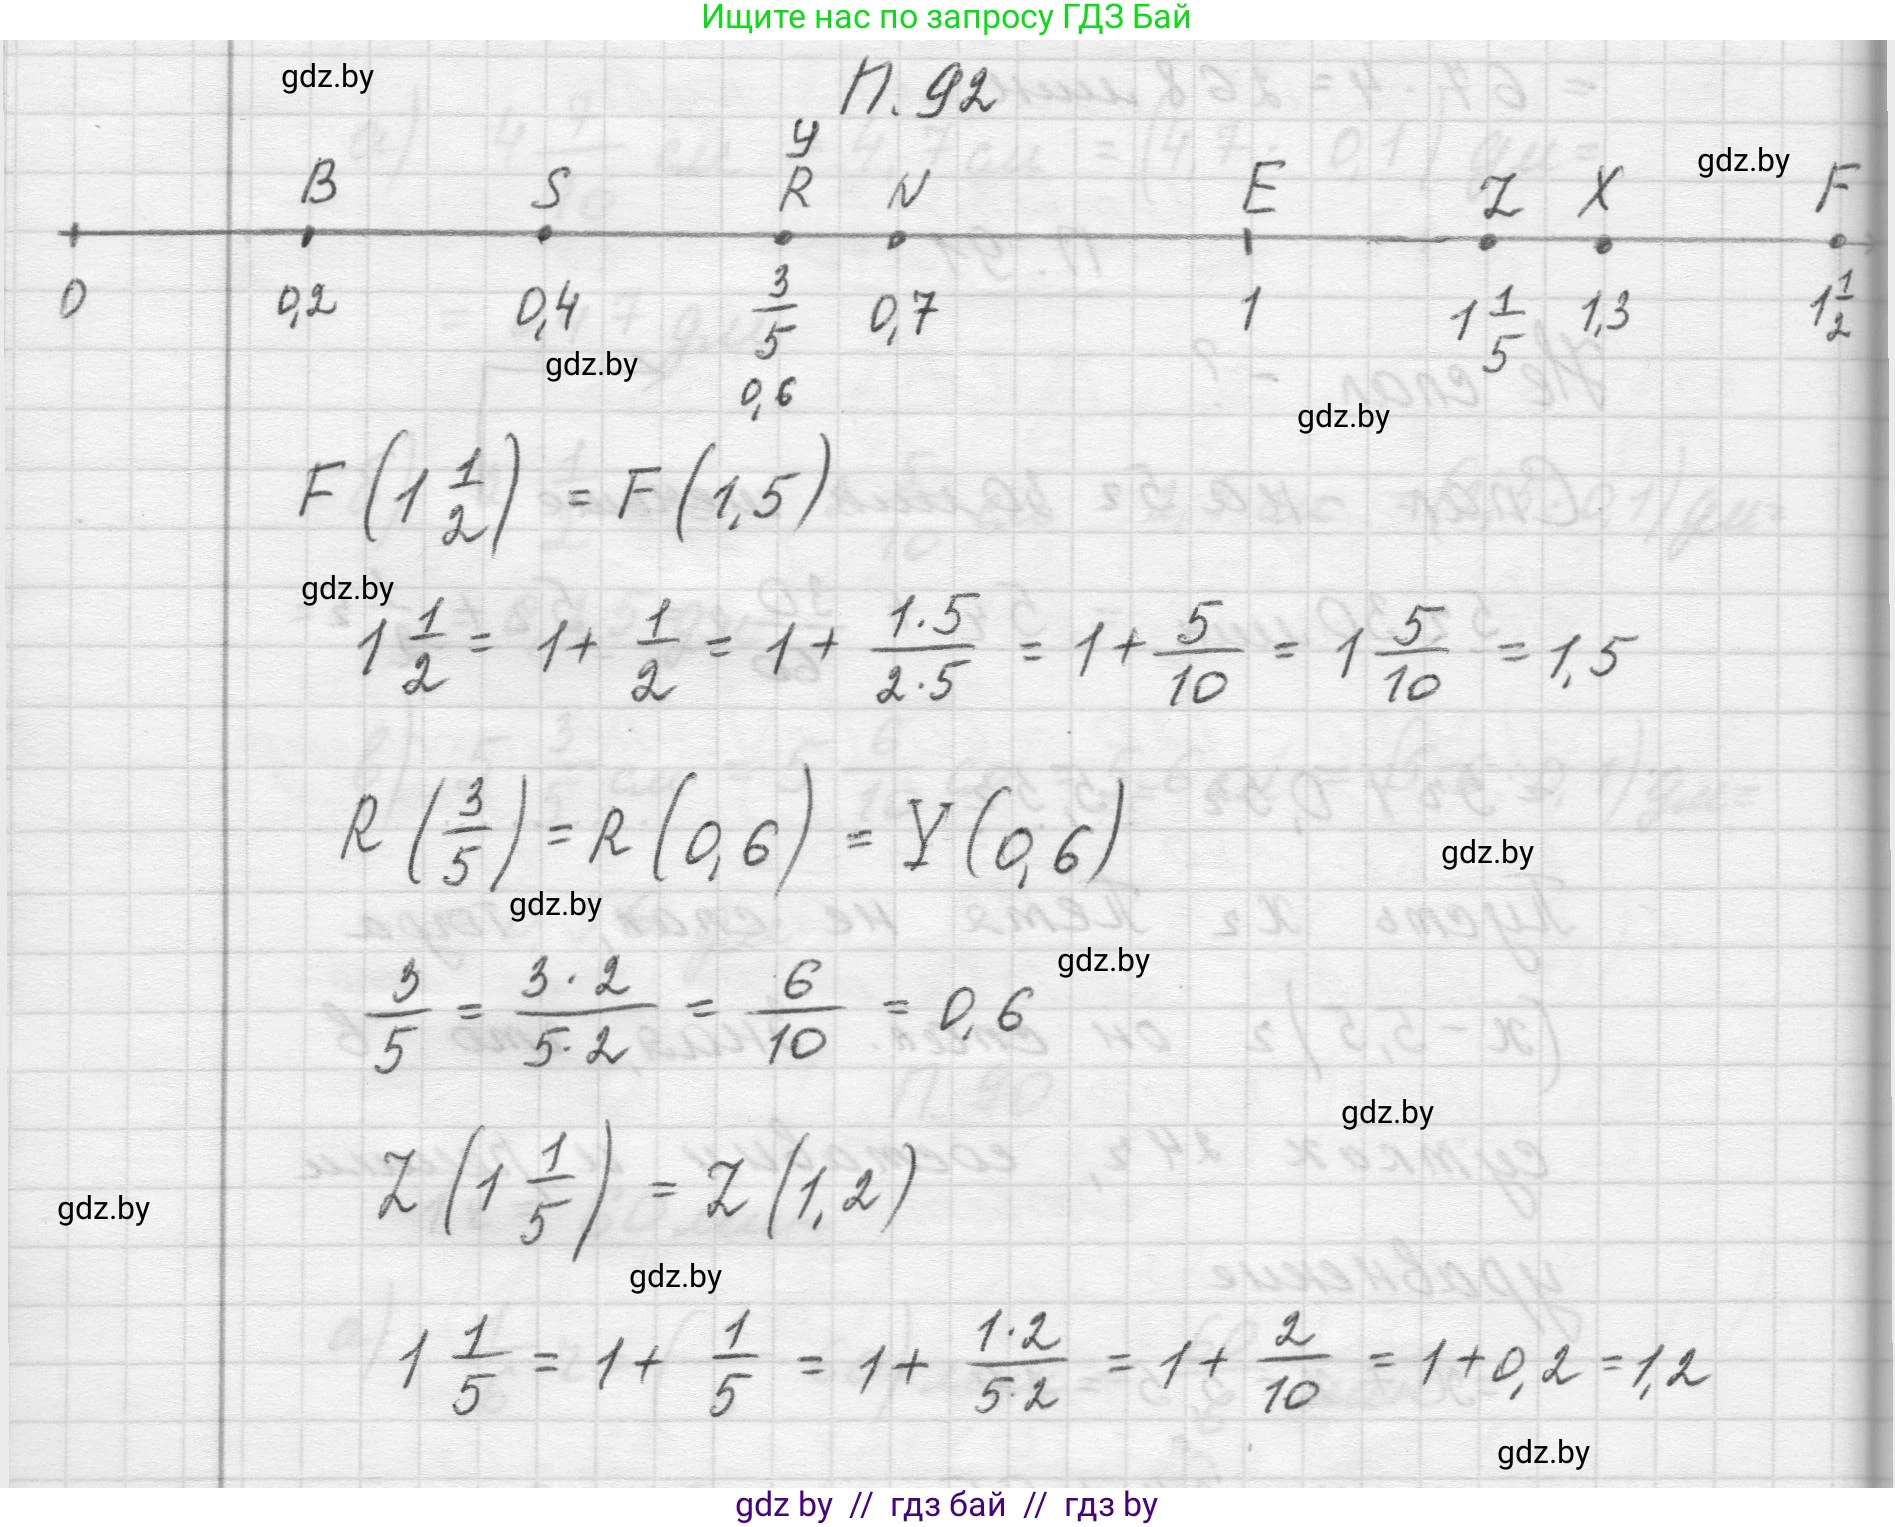 Ищите нас по запросу ГДЗ Бай
gdz.by
П. 92
gdz.by
У
B S R N E Z X F
0 0,2 0,4 3/5 0,7 1 1 1/5 1,3 1 1/2
0,6
gdz.by
gdz.by
F(1 1/2) = F(1,5)
gdz.by
1 1/2 = 1 + 1/2 = 1 + 1·5/2·5 = 1 + 5/10 = 1 5/10 = 1,5
R(3/5) = R(0,6) = Y(0,6)
gdz.by
gdz.by
gdz.by
3/5 = 3·2/5·2 = 6/10 = 0,6
gdz.by
Z(1 1/5) = Z(1,2)
gdz.by
gdz.by
1 1/5 = 1 + 1/5 = 1 + 1·2/5·2 = 1 + 2/10 = 1 + 0,2 = 1,2
gdz.by
gdz by // гдз бай // гдз by